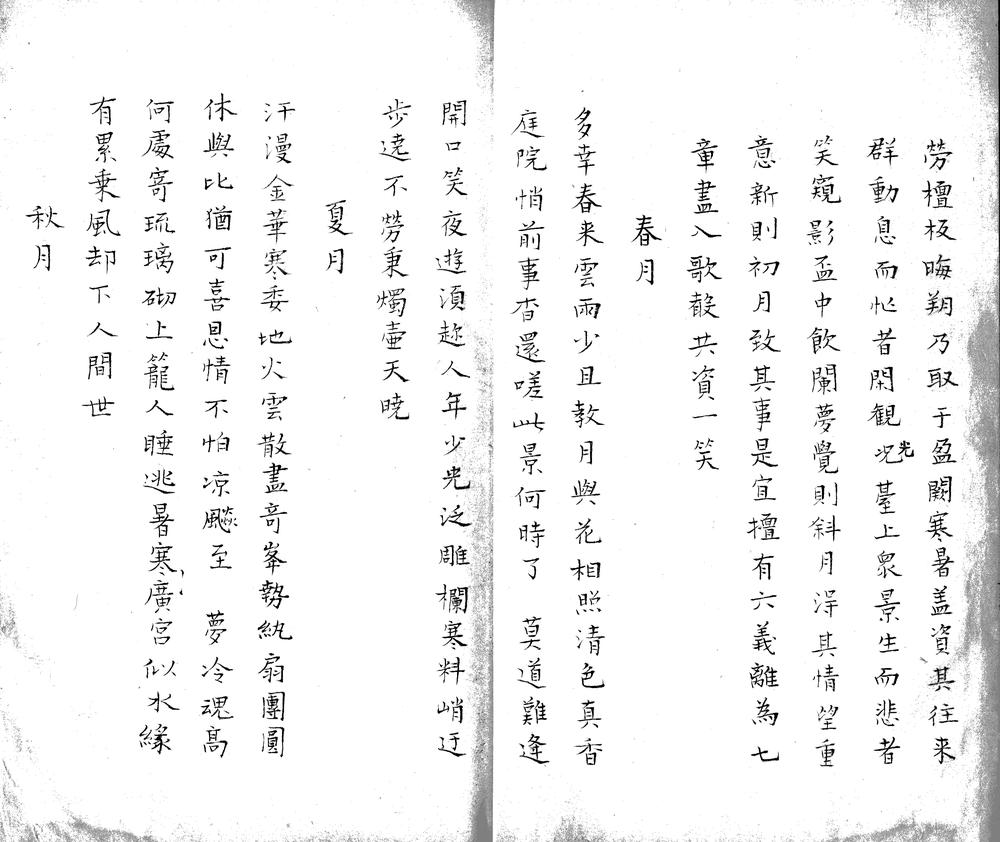 勞檀板晦朔乃取于盈闕寒暑盖資其往来
群動息而忙者閑観光况臺上衆景生而悲者
笑窺影盃中飲闌夢覺則斜月淂其情望重
意新則初月致其事是宜擅有六義離為七
章盡入歌聲共資一笑
春月
多幸春来雲雨少且教月與花相照清色真香
庭院悄前事杳還嗟此景何時了　莫道難逢
開口笑夜遊湏趂人年少光泛雕欄寒料峭迂
步遶不勞秉燭壷天曉
夏月
汗漫金華寒委地火雲散盡竒峯勢紈扇團圓
休與比猶可喜恩情不怕凉飈至　夢冷魂髙
何處寄琉璃砌上籠人睡逃暑寒廣宫似水緣
有累乗風却下人間世
秋月